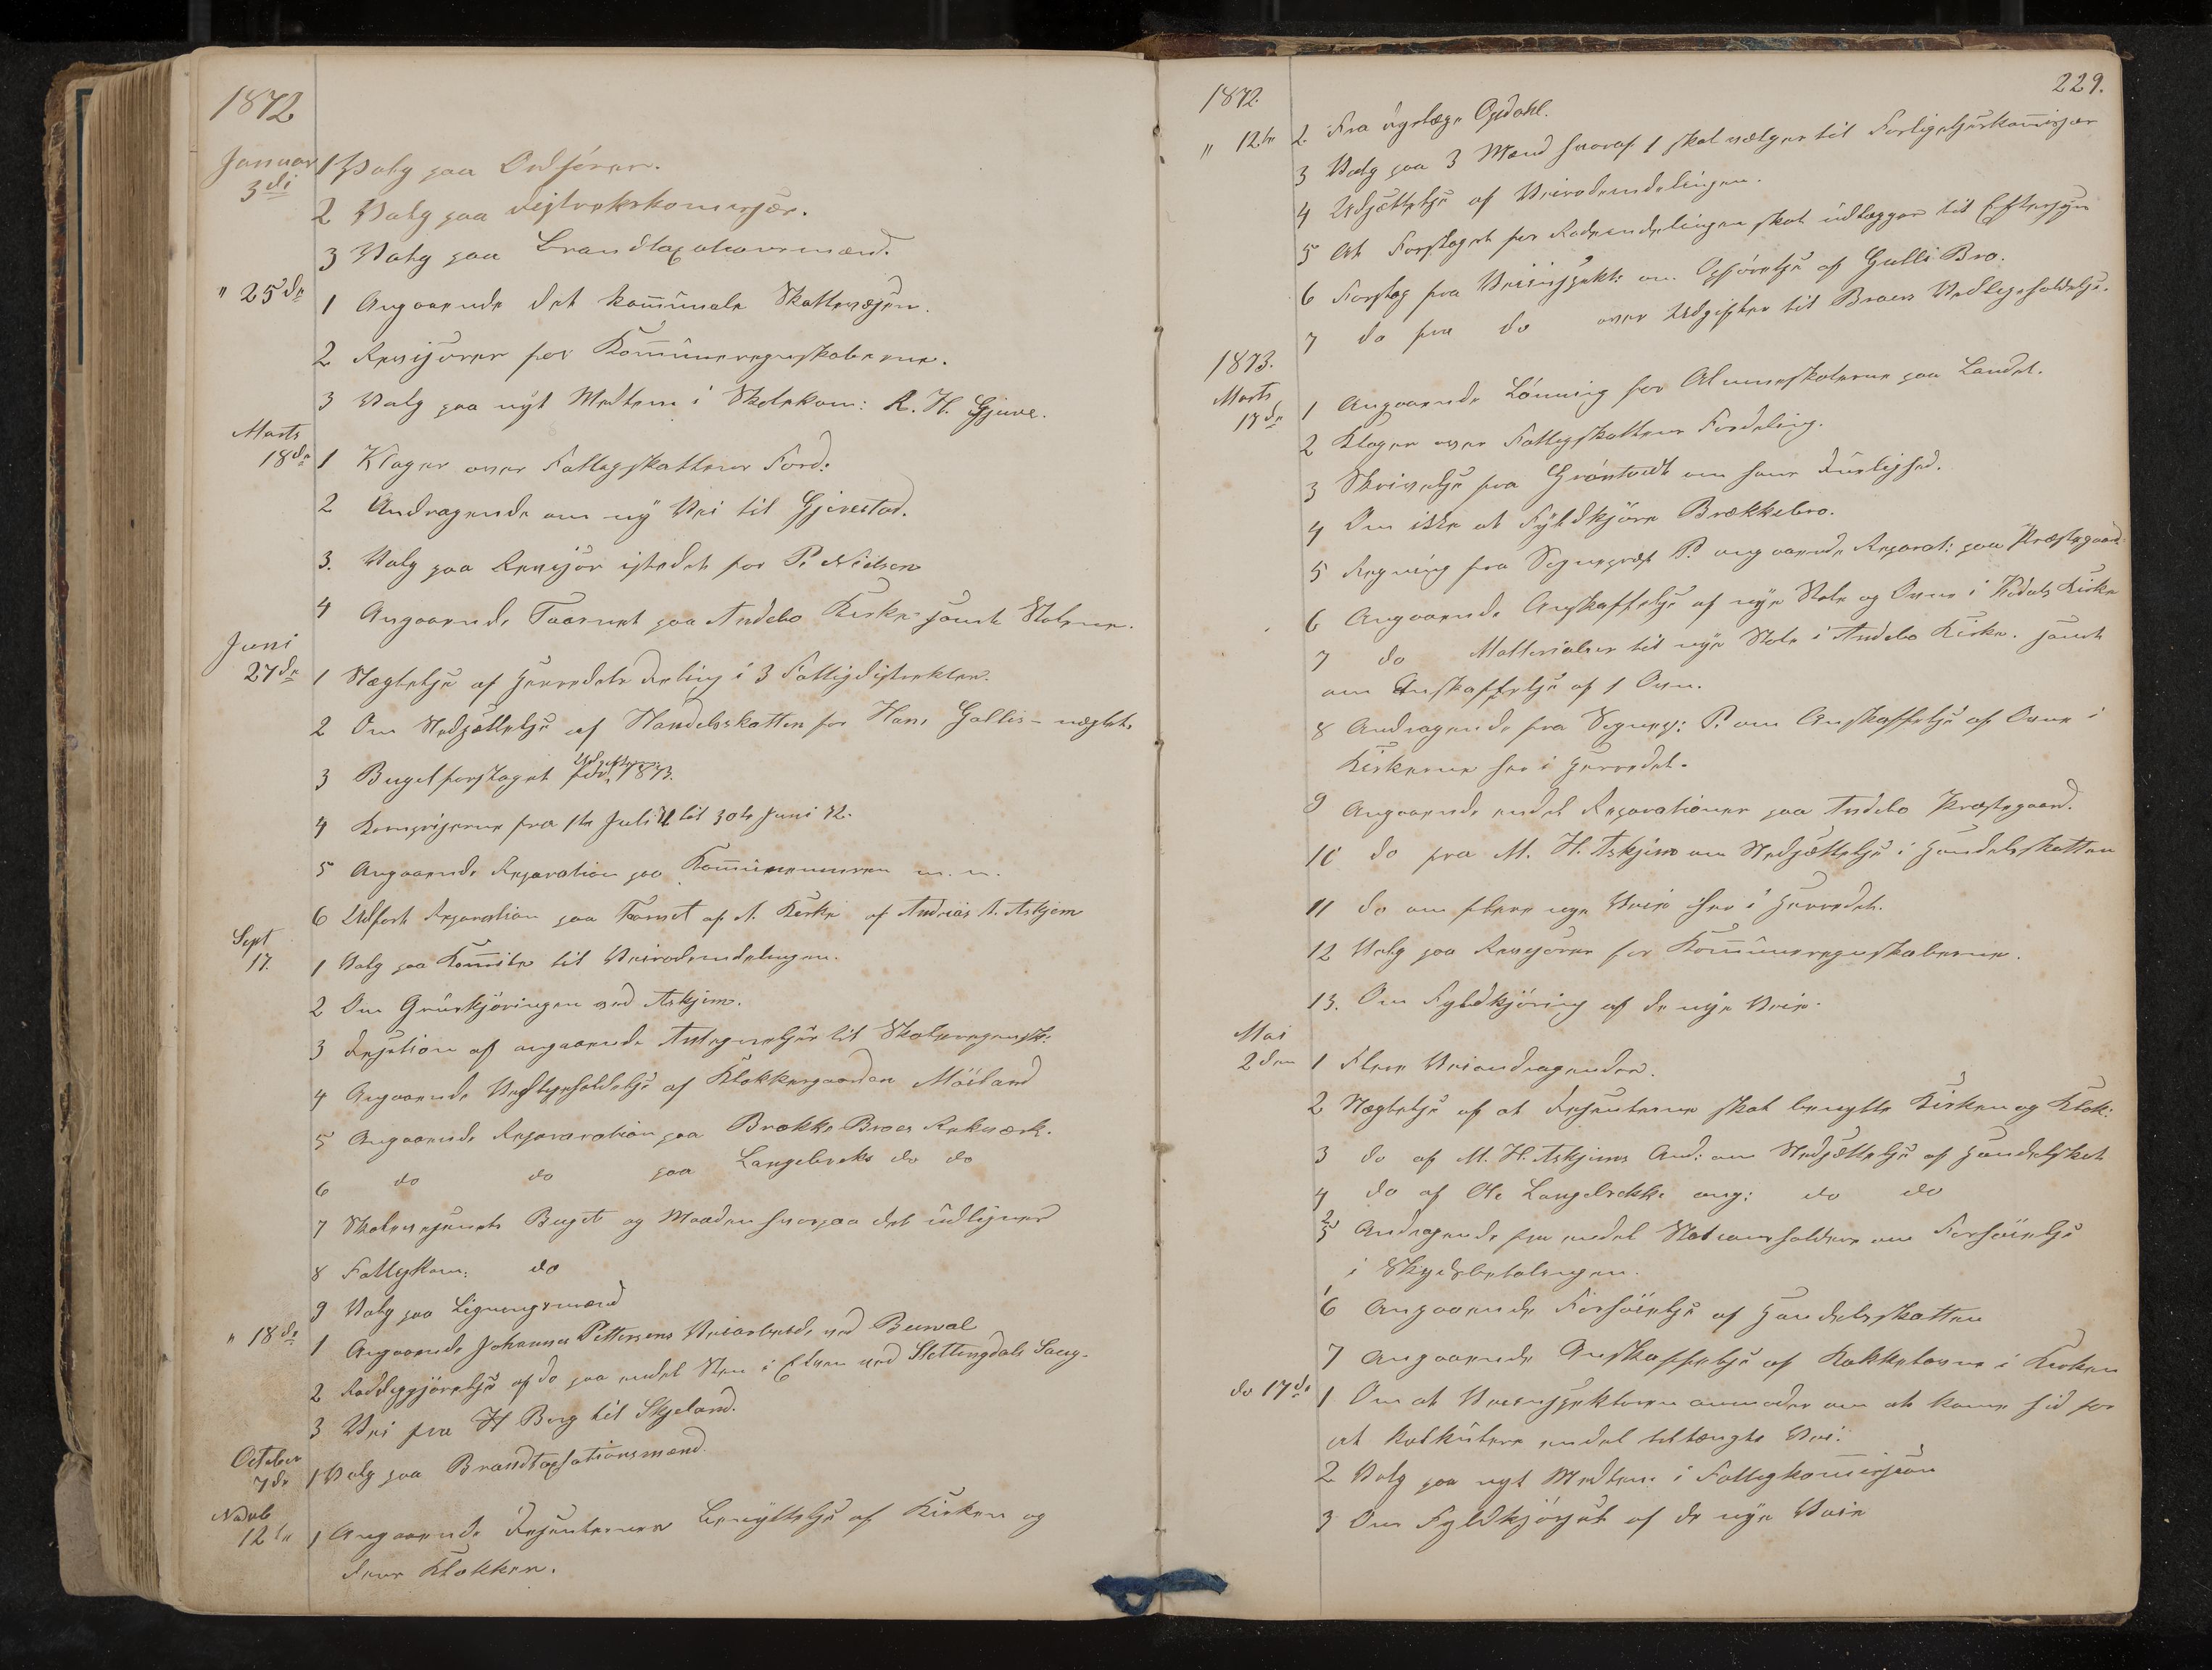 1872
Januar 3die 1 Valg paa Ordförer.
2 Valg paa distriktskomisjær.
3 Valg paa Brandtaxationsmænd.
" 25de 1 Angaaende det kommunale Skattevæsen.
2 Revisorer for Kommuneregnskaberne.
3 Valg paa nyt Medlem i Skolekom: R. H. Gjuve.
Marts 18de 1 Klager over Fattigskattens Ford:
2 Andragende om ny Vei til Gjerestad.
3. Valg paa Revisor istedet for P. Nielsen
4 Angaaende Taarnet paa Andebo Kirke samt Stolene.
Juni 27de 1 Nægtelse af Herredets Deling i 3 Fattigdistrikter.
2 Om Nedsættelse af Handelsskatten for Hans Gallis - nægtet
3 Bugetforslaget for Udgifterne 1873.
4 Kornpriserne fra 1te Juli 71 til 30te Juni 72.
5 Angaaende Reparation paa Kommunemuren m. m.
6 Udfört Reparation paa Taarnet af A. Kirke af Andreas A. Askjem
Sept 17. 1 Valg paa Komite til Veirodeindelingen.
2 Om Gruskjöringen ved Askjem.
3 Desition af angaaende Antegnelser til Skoleregnsk:
4 Angaaende Vedligeholdelse af Klokkergaarden Möiland
5 Angaaende Repararation paa Brække Broes Rekværk.
6 do do paa Langebreks do do
7 Skolevæsenets Buget og Maaden hvorpaa det udlignes
8 Fattigkom: do
9 Valg paa Ligningsmænd
" 18de 1 Angaaende Johannes Pettersens Veiarbeide ved Berval
2 Rødliggjörelse af do paa endel Sten i Elven ved Slettingdals Saug.
3 Vei fra H Berg til Skjeland.
October 7de 1 Valg paa Brandtaxationsmænd.
Novb 12te 1 Angaaende Desenternes Benyttelse af Kirken og
dens Klokker.
229.
1872.
" 12te 2. Fra dyrlæge Opdahl.
3 Valg paa 3 Mænd hvoraf 1 skal vælges til Forligelseskommisjær
4 Udsættelse af Veirodeindelingen.
5 At Forslaget for Rodeindelingen skal udlægges til Eftersyn
6 Forslag fra Veiinspekt: om Opförelse af Gulli Bro.
7 do fra do over Udgifter til Broens Vedligeholdelse.
1873.
Marts 17de 1 Angaaende Lönning for Almueskolerne paa Landet.
2 Klager over Fattigskattens Fordeling.
3 Skrivelse fra Gröntvedt om hans duelighed.
4 Om ikke at Fyldkjöre Brækkebro.
5 Regning fra Sognepræst P. angaaende Reparat: paa Præstegaard:
6 Angaaende Anskaffelse af nye Stole og Ovne i Kodals Kirke
7 do Matterialier til nye Stole i Andebo Kirke. samt
om Anskaffelse af 1 Ovn.
8 Andragende fra Sognep: P. om Anskaffelse af Ovne i
Kirkerne her i Herredet.
9 Angaaende endel Reparationer paa Andebo Præstegaard.
10 do fra M. H. Askjem om Nedsættelse i Handelsskatten
11 do om flere nye Veie her i Herredet.
12 Valg paa Revisorer for Kommuneregnskaberne.
13. Om Fyldkjöring af de nye Veie.
Mai 2den 1 Flere Veiandragender.
2 Nægtelse af at Desenterne skal benytte Kirken og Klok:
3 do af M. H. Askjems And: om Nedsættelse af Handelsskat
4 do af Ole Langebrekke ang: do do
5 Andragende fra endel Stationsholdere om Forhöielse
i Skydsbetalingen.
6 Angaaende Forhöielse af Handelsskatten
7 Angaaende Anskaffelse af Kakkelovne i Kirken
do 17de 1 Om at Veiinspektoren anmodes om at komme hid for
at kalkulere endel tiltængte Vei:
2 Valg paa nyt Medlem i Fattigkommisjon
3 Om Fyldkjörsel af de nye Veie